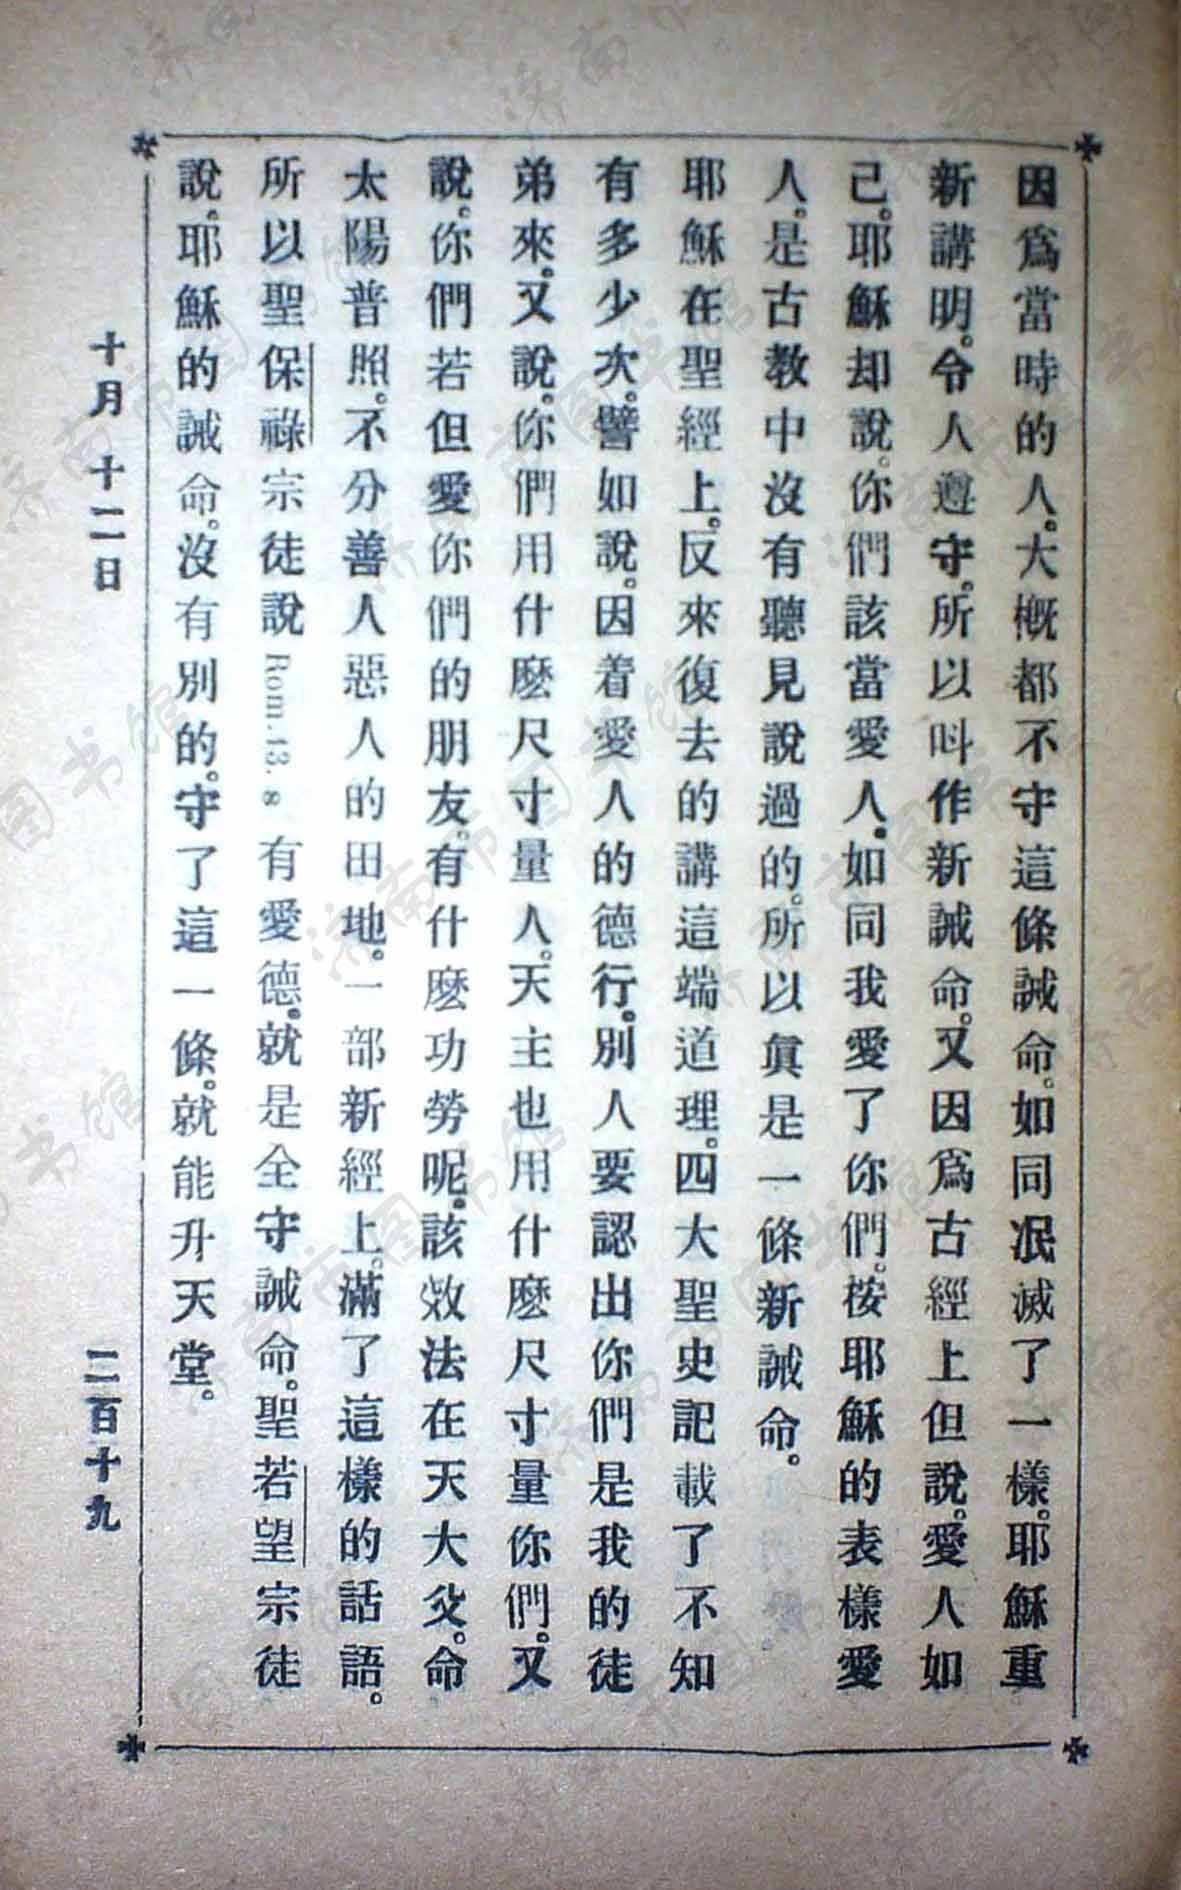 因爲當時的人。大概都不守這條誡命。如同泯滅了一樣。耶穌重
新講明。令人遵守。所以呌作新誡命。又因爲古經上但說。愛人如
己。耶穌却說。你們該當愛人。如同我愛了你們。按耶穌的表樣愛
人。是古教中沒有聽見說過的。所以眞是一條新誡命。
耶穌在聖經上。反來復去的講這端道理。四大聖史記載了不知
有多少次。譬如說。因着愛人的德行。別人要認出你們是我的徒
弟來。又說。你們用什麽尺寸量人。天主也用什麽尺寸量你們。又
說。你們若但愛你們的朋友。有什麽功勞呢。該效法在天大父。命
太陽普照。不分善人惡人的田地。一部新經上。滿了這樣的話語。
所以聖保祿宗徒說 Rom. 13. 8 有愛德。就是全守誡命。聖若望宗徒
說。耶穌的誡命。沒有別的。守了這一條。就能升天堂。
十月 十一日 二百十九
济南市图书馆